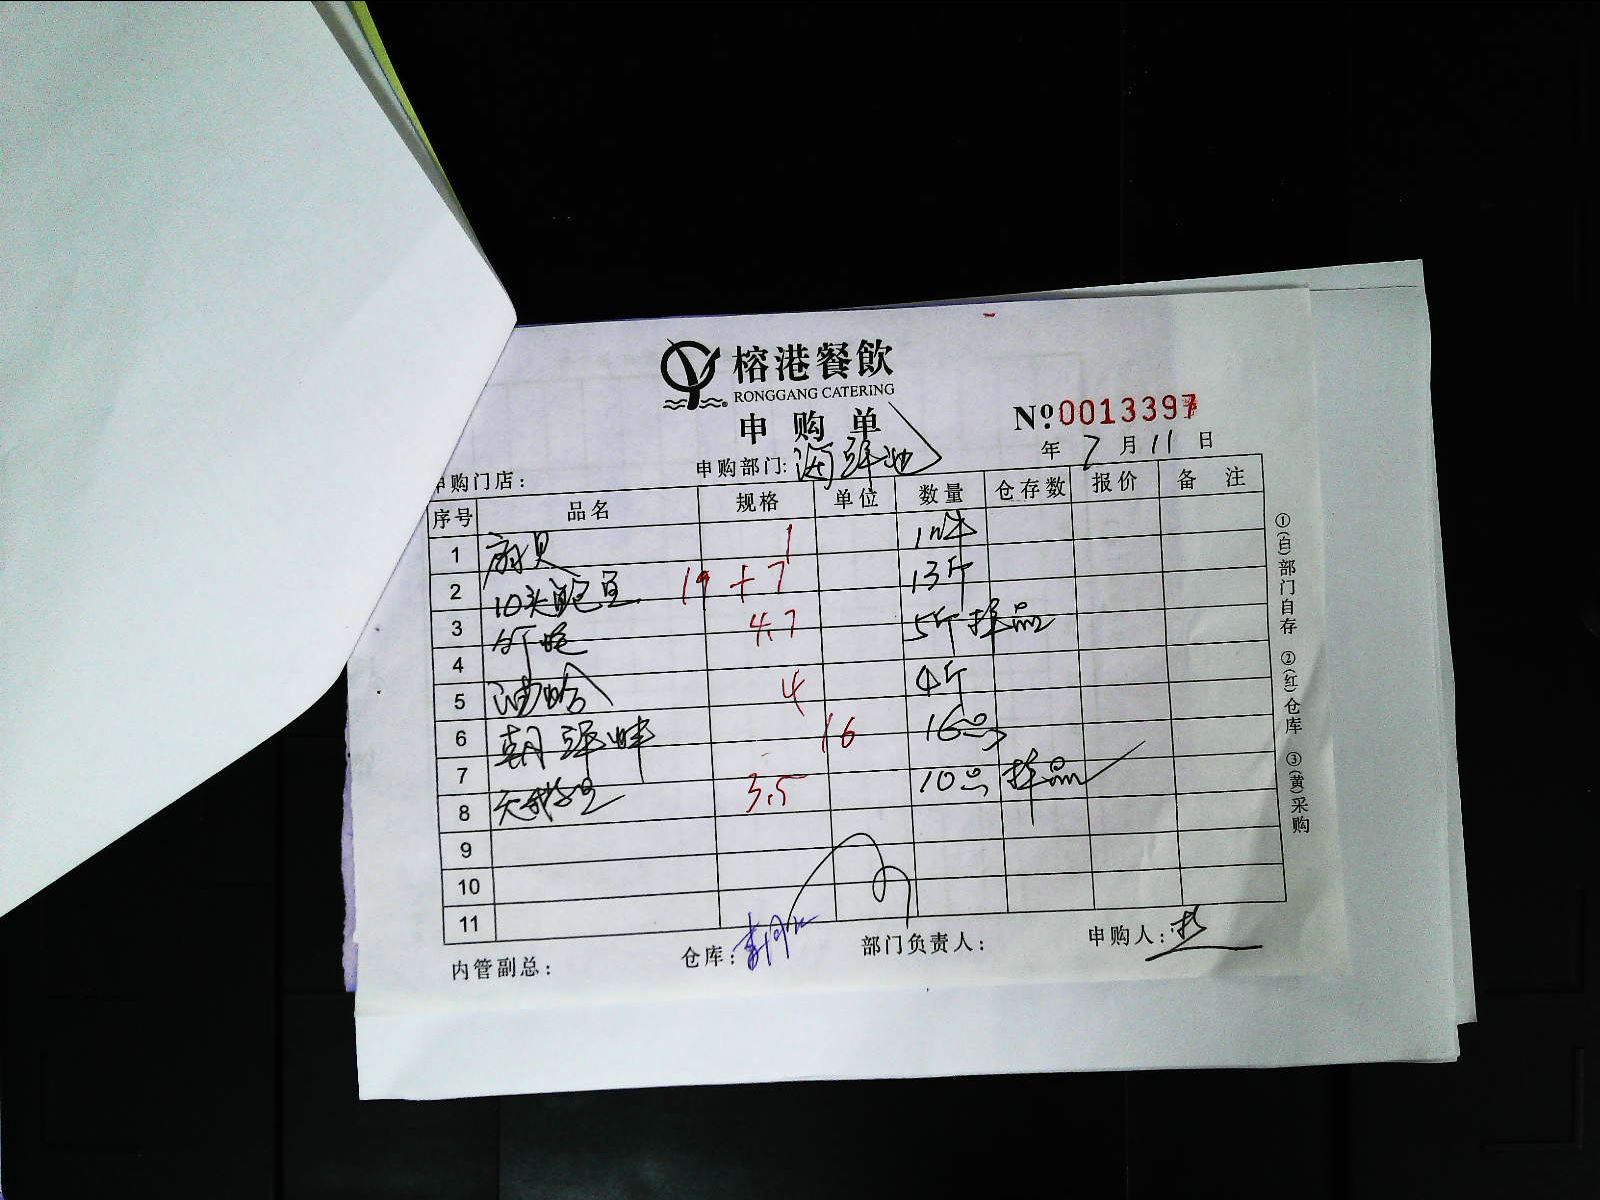 榕港餐飲
RONGGANG CATERING
申购单
№0013397
年 7 月 11 日
申购门店: 申购部门: 海鲜池
序号 品名 规格 单位 数量 仓存数 报价 备注
1 扇贝 1 1件
2 10头鲍鱼 19+7 13斤
3 竹蛏 4.7 5斤 样品
4
5 油蛤 4 4斤
6 朝鲜蚌 16 16只
7
8 天鹅蛋 3.5 10只 样品
9
10
11
内管副总: 仓库: 部门负责人: 申购人:
①(白)部门自存 ②(红)仓库 ③(黄)采购